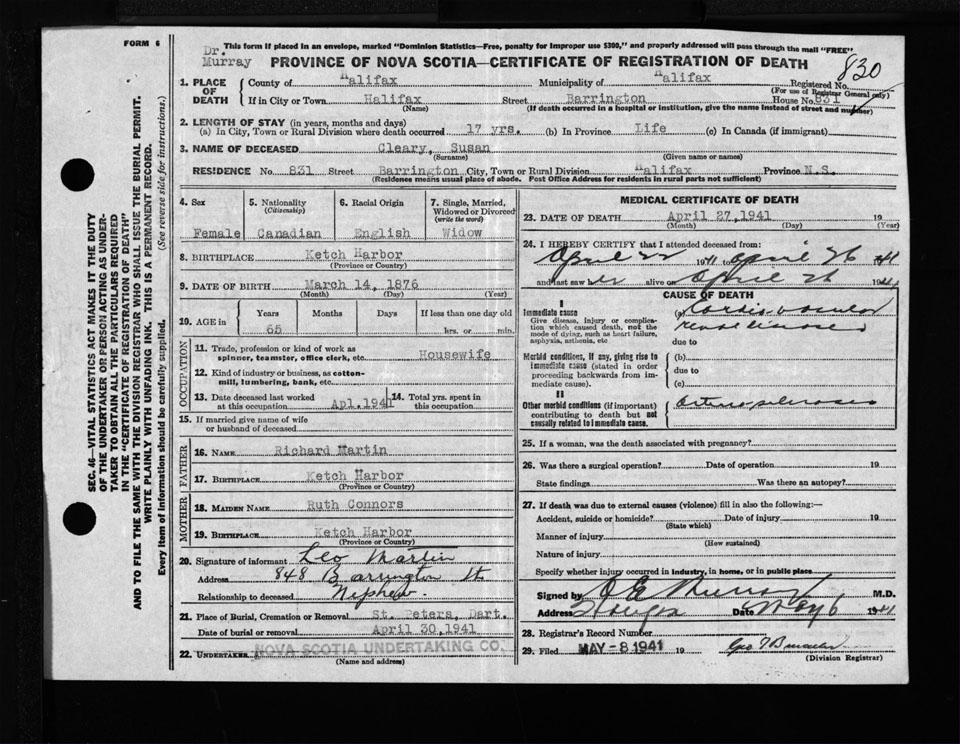 FORM 6
This form if placed in an envelope, marked "Dominion Statistics—Free, penalty for improper use $300," and properly addressed will pass through the mail "FREE"
Dr. Murray
PROVINCE OF NOVA SCOTIA—CERTIFICATE OF REGISTRATION OF DEATH
830
1. PLACE OF DEATH
County of Halifax Municipality of Halifax Registered No.
(For use of Registrar General only)
If in City or Town Halifax Street Barrington House No. 831
(Name) (If death occurred in a hospital or institution, give the name instead of street and number)
2. LENGTH OF STAY (in years, months and days)
(a) In City, Town or Rural Division where death occurred 17 yrs. (b) In Province Life (c) In Canada (if immigrant)
3. NAME OF DECEASED Cleary, Susan
(Surname) (Given name or names)
RESIDENCE No. 831 Street Barrington City, Town or Rural Division Halifax Province N.S.
(Residence means usual place of abode. Post Office Address for residents in rural parts not sufficient)
4. Sex Female
5. Nationality (Citizenship) Canadian
6. Racial Origin English
7. Single, Married, Widowed or Divorced (write the word) Widow
8. BIRTHPLACE Ketch Harbor
(Province or Country)
9. DATE OF BIRTH March 14, 1876
(Month) (Day) (Year)
10. AGE in Years Months Days If less than one day old
65 hrs. or min.
OCCUPATION
11. Trade, profession or kind of work as spinner, teamster, office clerk, etc. Housewife
12. Kind of industry or business, as cotton-mill, lumbering, bank, etc.
13. Date deceased last worked at this occupation Apl. 1941
14. Total yrs. spent in this occupation
15. If married give name of wife or husband of deceased
FATHER
16. NAME Richard Martin
17. BIRTHPLACE Ketch Harbor
(Province or Country)
MOTHER
18. MAIDEN NAME Ruth Connors
19. BIRTHPLACE Ketch Harbor
(Province or Country)
20. Signature of informant Leo Martin
Address 848 Barrington St
Relationship to deceased Nephew
21. Place of Burial, Cremation or Removal St. Peters, Dart.
Date of burial or removal April 30, 1941
22. UNDERTAKER NOVA SCOTIA UNDERTAKING CO.
(Name and address)
MEDICAL CERTIFICATE OF DEATH
23. DATE OF DEATH April 27, 1941 19
(Month) (Day) (Year)
24. I HEREBY CERTIFY that I attended deceased from:
April 22 1941 to April 26 1941
and last saw her alive on April 26 1941
CAUSE OF DEATH
I
Immediate cause
Give disease, injury or complication which caused death, not the mode of dying, such as heart failure, asphyxia, asthenia, etc
(a) Cardio-vascular
renal
due to
Morbid conditions, if any, giving rise to immediate cause (stated in order proceeding backwards from immediate cause).
(b)
due to
(c)
II
Other morbid conditions (if important) contributing to death but not causally related to immediate cause.
25. If a woman, was the death associated with pregnancy?
26. Was there a surgical operation? Date of operation 19
State findings Was there an autopsy?
27. If death was due to external causes (violence) fill in also the following:—
Accident, suicide or homicide? Date of injury 19
(State which)
Manner of injury
(How sustained)
Nature of injury
Specify whether injury occurred in industry, in home, or in public place
Signed by O E Murray M.D.
Address Halifax Date May 6 1941
28. Registrar's Record Number
29. Filed MAY -8 1941 19
(Division Registrar)
SEC. 46—VITAL STATISTICS ACT MAKES IT THE DUTY
OF THE UNDERTAKER OR PERSON ACTING AS UNDER-
TAKER TO OBTAIN ALL THE PARTICULARS REQUIRED
IN THE "CERTIFICATE OF REGISTRATION OF DEATH"
AND TO FILE THE SAME WITH THE DIVISION REGISTRAR WHO SHALL ISSUE THE BURIAL PERMIT.
WRITE PLAINLY WITH UNFADING INK. THIS IS A PERMANENT RECORD.
Every item of information should be carefully supplied. (See reverse side for instructions.)